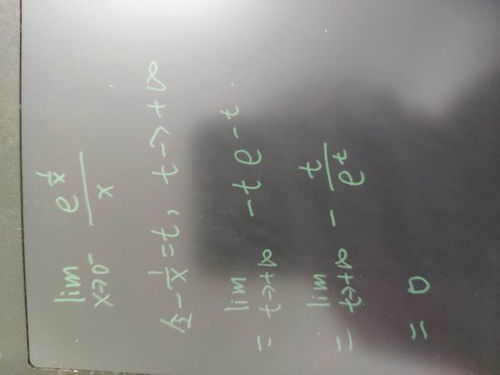 lim x→0⁻ e^(1/x) / x
令 -1/x = t, t → +∞
= lim t→+∞ -t e^(-t).
= lim t→+∞ - t/e^t
= 0